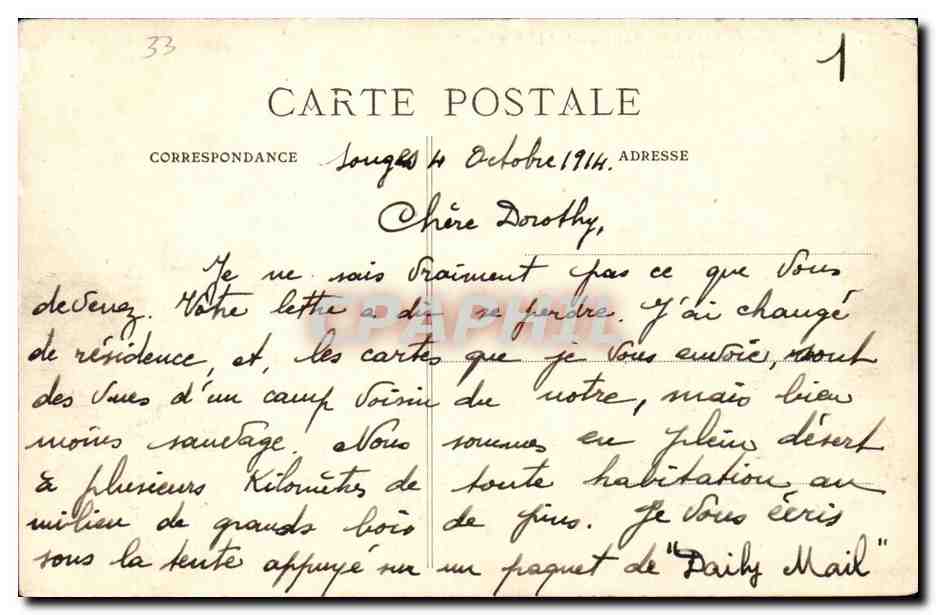 33
1
CARTE POSTALE
CORRESPONDANCE
ADRESSE
Souges 4 Octobre 1914.
Chère Dorothy,
Je ne sais vraiment pas ce que vous
devenez. Vôtre lettre a dû se perdre. J'ai changé
de résidence, et, les cartes que je vous envoie, sont
des vues d'un camp voisin du notre, mais bien
moins sauvage. Nous sommes en plein désert
à plusieurs Kilomètres de toute habitation au
milieu de grands bois de pins. Je vous écris
sous la tente appuyé sur un paquet de "Daily Mail"
CPAPHIL